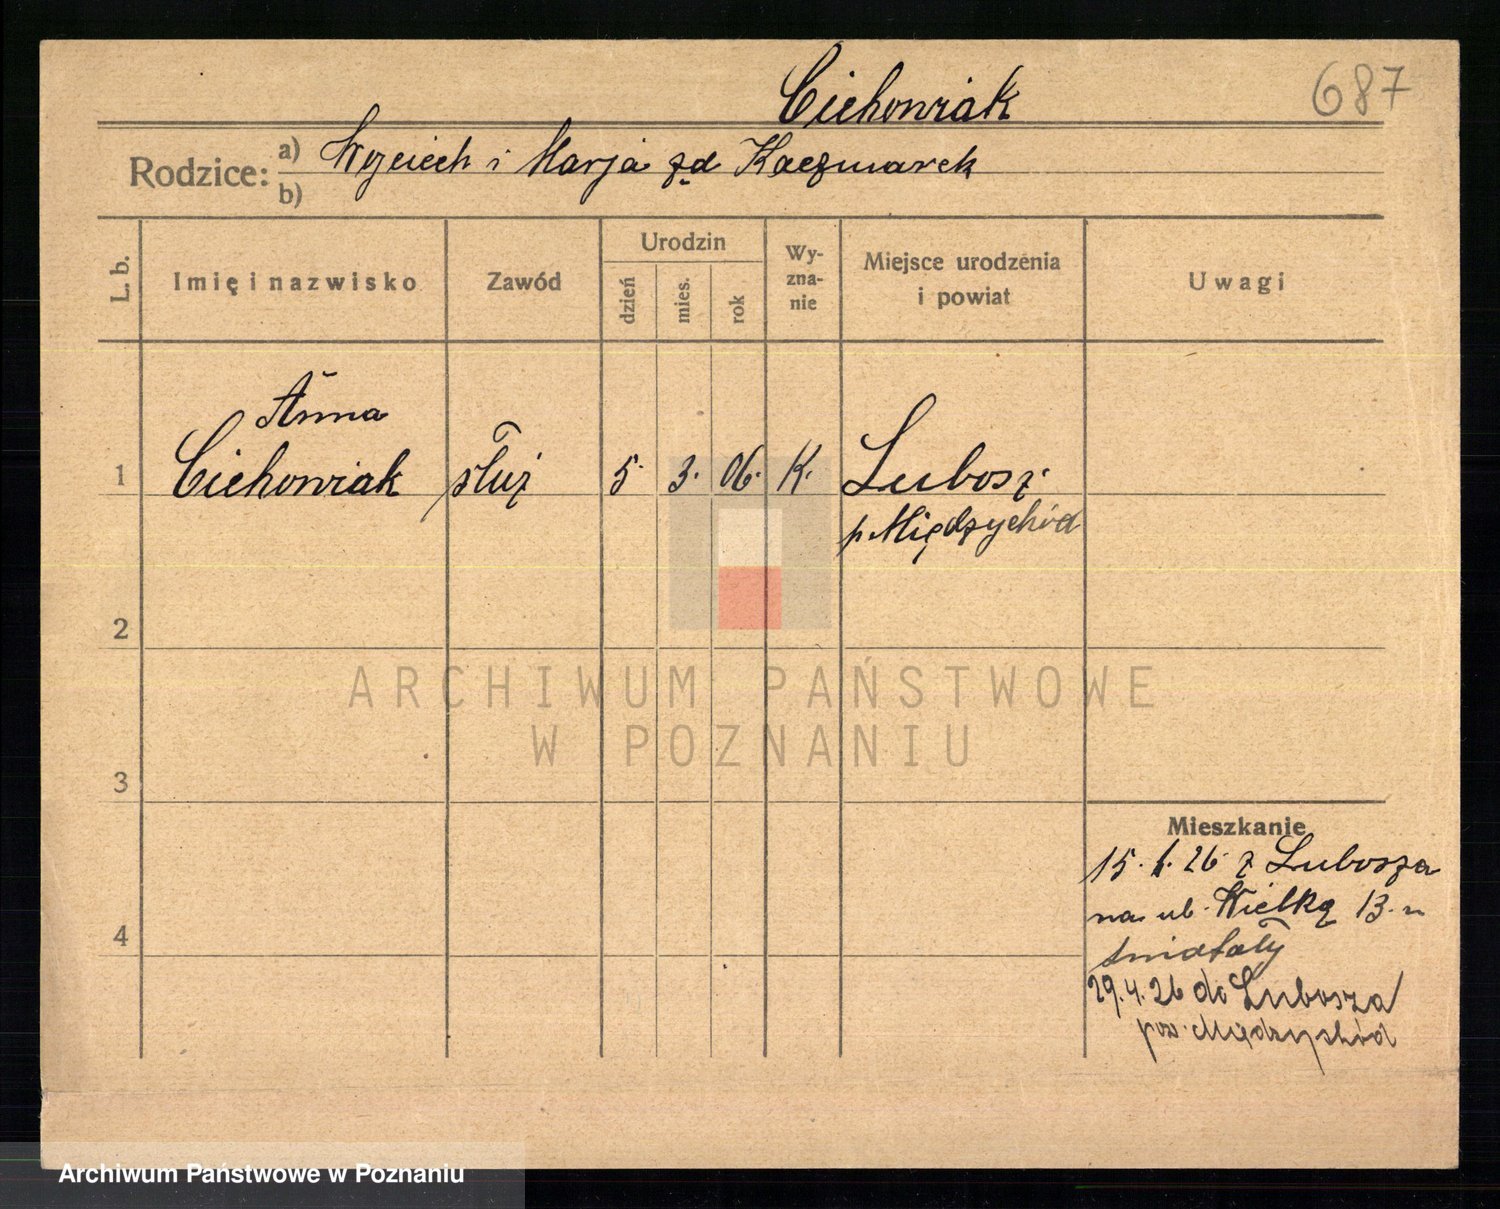 Cichowiak
687
Rodzice:
a) Wojciech i Marja zd Kaczmarek
b)
L. b.
Imię i nazwisko
Zawód
Urodzin
dzień
mies.
rok
Wy-
zna-
nie
Miejsce urodzenia
i powiat
Uwagi
Anna
1 Cichowiak służ 5. 3. 06. K. Lubosz
p. Międzychód
2
3
4
ARCHIWUM PAŃSTWOWE
W POZNANIU
Mieszkanie
15. 1. 26 z Lubosza
na ul. Wielką 13. u
29.4.26 do Lubosza
pow. Międzychód
Archiwum Państwowe w Poznaniu